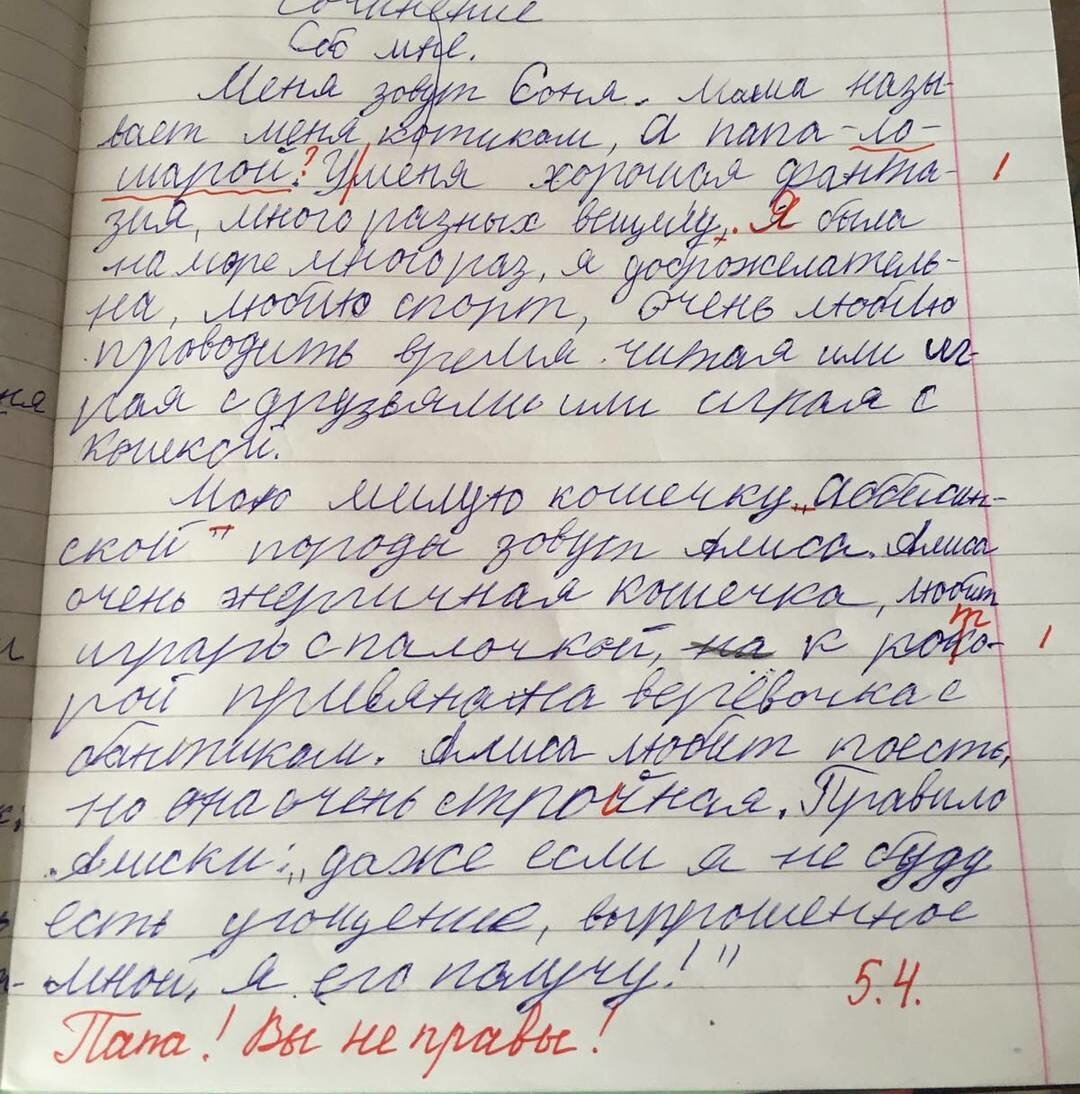 Сочинение
Обо мне.
Меня зовут Соня. Мама назы-
вает меня котиком, а папа - ло-
шарой.? У меня хорошая фанта- 1
зия, много разных вещиц,. Я была
на море много раз, я доброжелатель-
на, люблю спорт, очень люблю
проводить время читая или иг-
рая с друзьями или играя с
кошкой.
ня
Мою милую кошечку „Аббисин-
ской" породы зовут Алиса. Алиса
очень энергичная кошечка, любит
играть с палочкой, на к которой 1
рой привязана верёвочка с
бантиком. Алиса любит поесть,
но она очень стройная. Правило
Алиски: „даже если я не буду
есть угощение, выпрошенное
мной, я его получу!"
5.4.
Папа! Вы не правы!